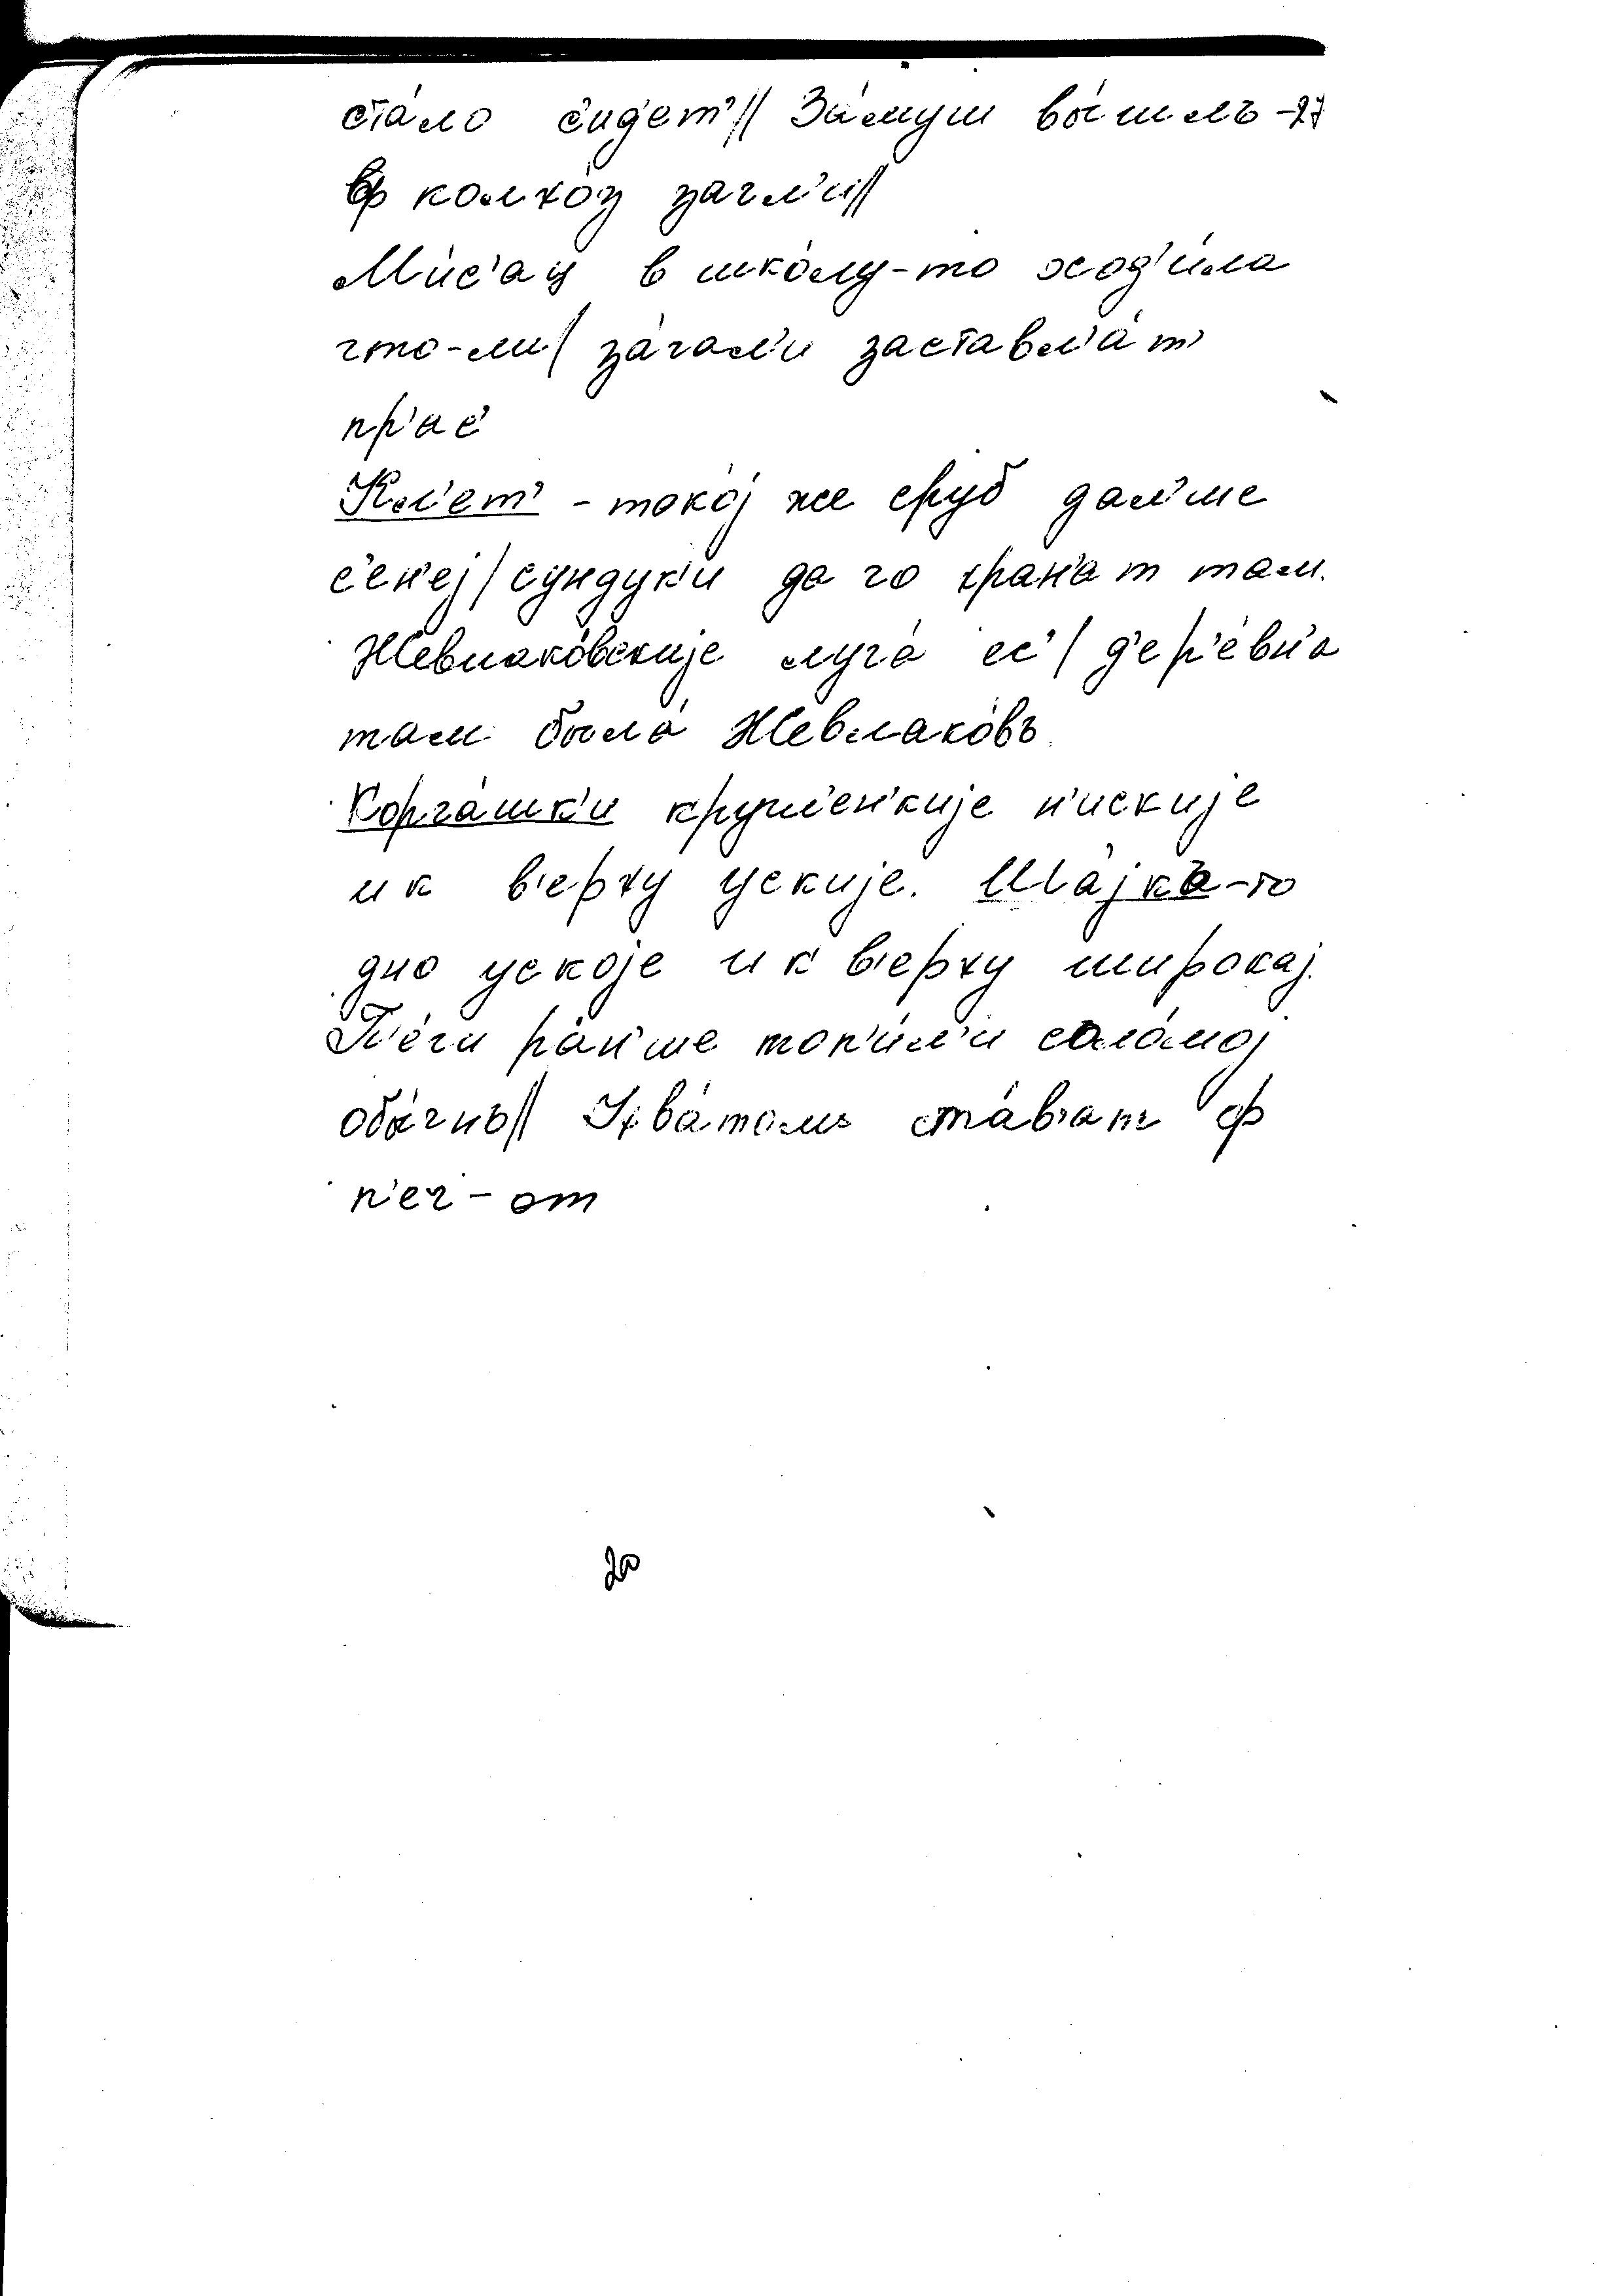 ста́ло с'ид'ет'// За́муш вы́шилъ -27
ф колхо́з загл'и́//
М'и́с'ац в шко́лу-то ход'и́ла
что-ли/ за́чал'и заставл'а́т'
пр'ас'
Кл'ет' - тако́j же сруб дал'ше
с'ен'еj/сундук'и да чо хран'ат там.
Жевлако́вскиjе луга́ ес'/ д'ер'е́вн'а
там была́ Жевлако́въ.
Корча́шк'и кругл'ен'киjе н'искиjе
и к в'ерху ускиjе. Ша́jка-то
дно ускоjе и к в'ерху широкаj.
П'е́чи ра́н'ше топ'и́л'и сало́моj
обы́чнъ// Ухва́томъ ста́в'ат ф
п'еч-от
20